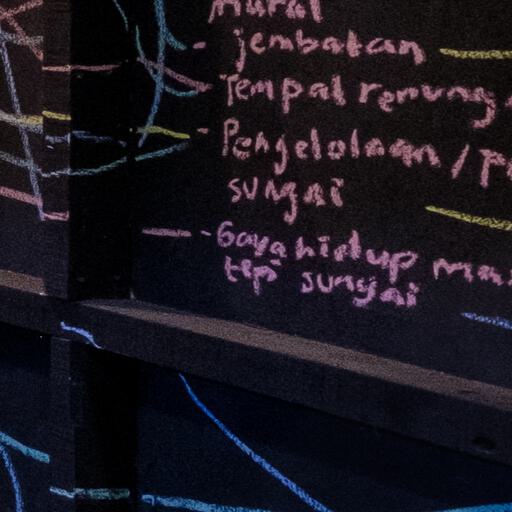 Mural
- jembatan
- Tempat renung
- Pengelolaan / P
sungai
- Gaya hidup mas
tepi sungai